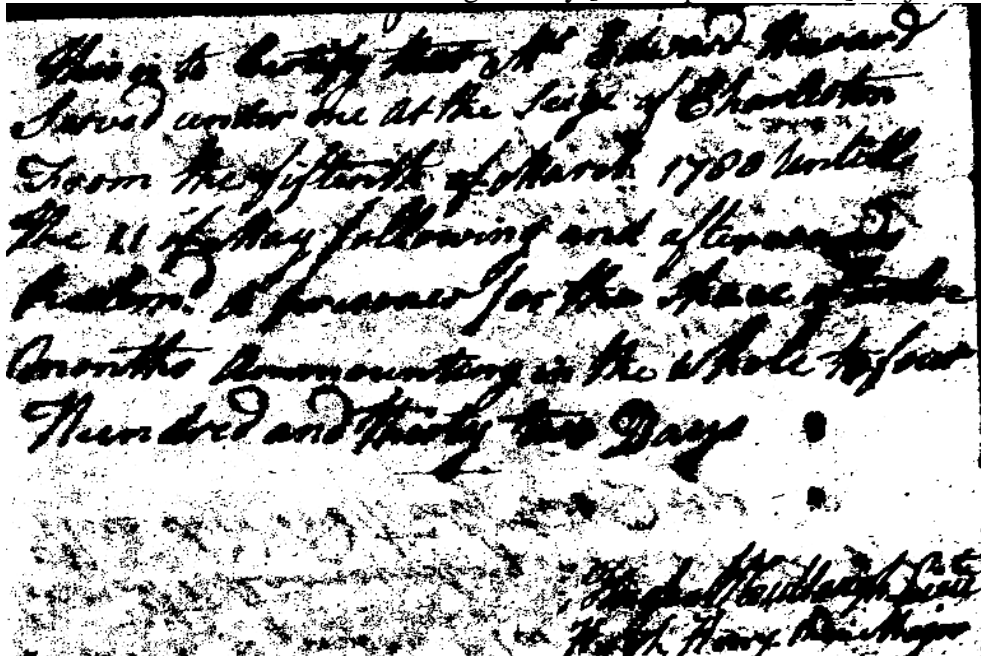 This is to Certify that Mr Edward Howard
Served under me at the Seige of Charleston
From the fifteenth of March 1780 untill
the 11 of May following and afterwards
a prisoner for the space of
months Ammounting in the whole to four
Hundred and thirty two Days
Capt
Hugh Horry then Major